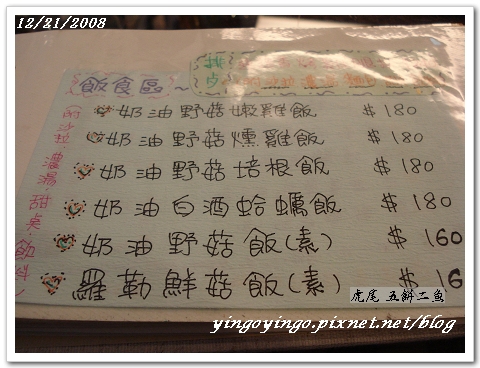 12/21/2008
排
飯食區~
奶油野菇嫩雞飯 $180
奶油野菇燻雞飯 $180
奶油野菇培根飯 $180
奶油白酒蛤蠣飯 $180
奶油野菇飯(素) $160
羅勒鮮菇飯(素) $16
附沙拉.濃湯.甜點.飲料
虎尾 五餅二魚
yingoyingo.pixnet.net/blog